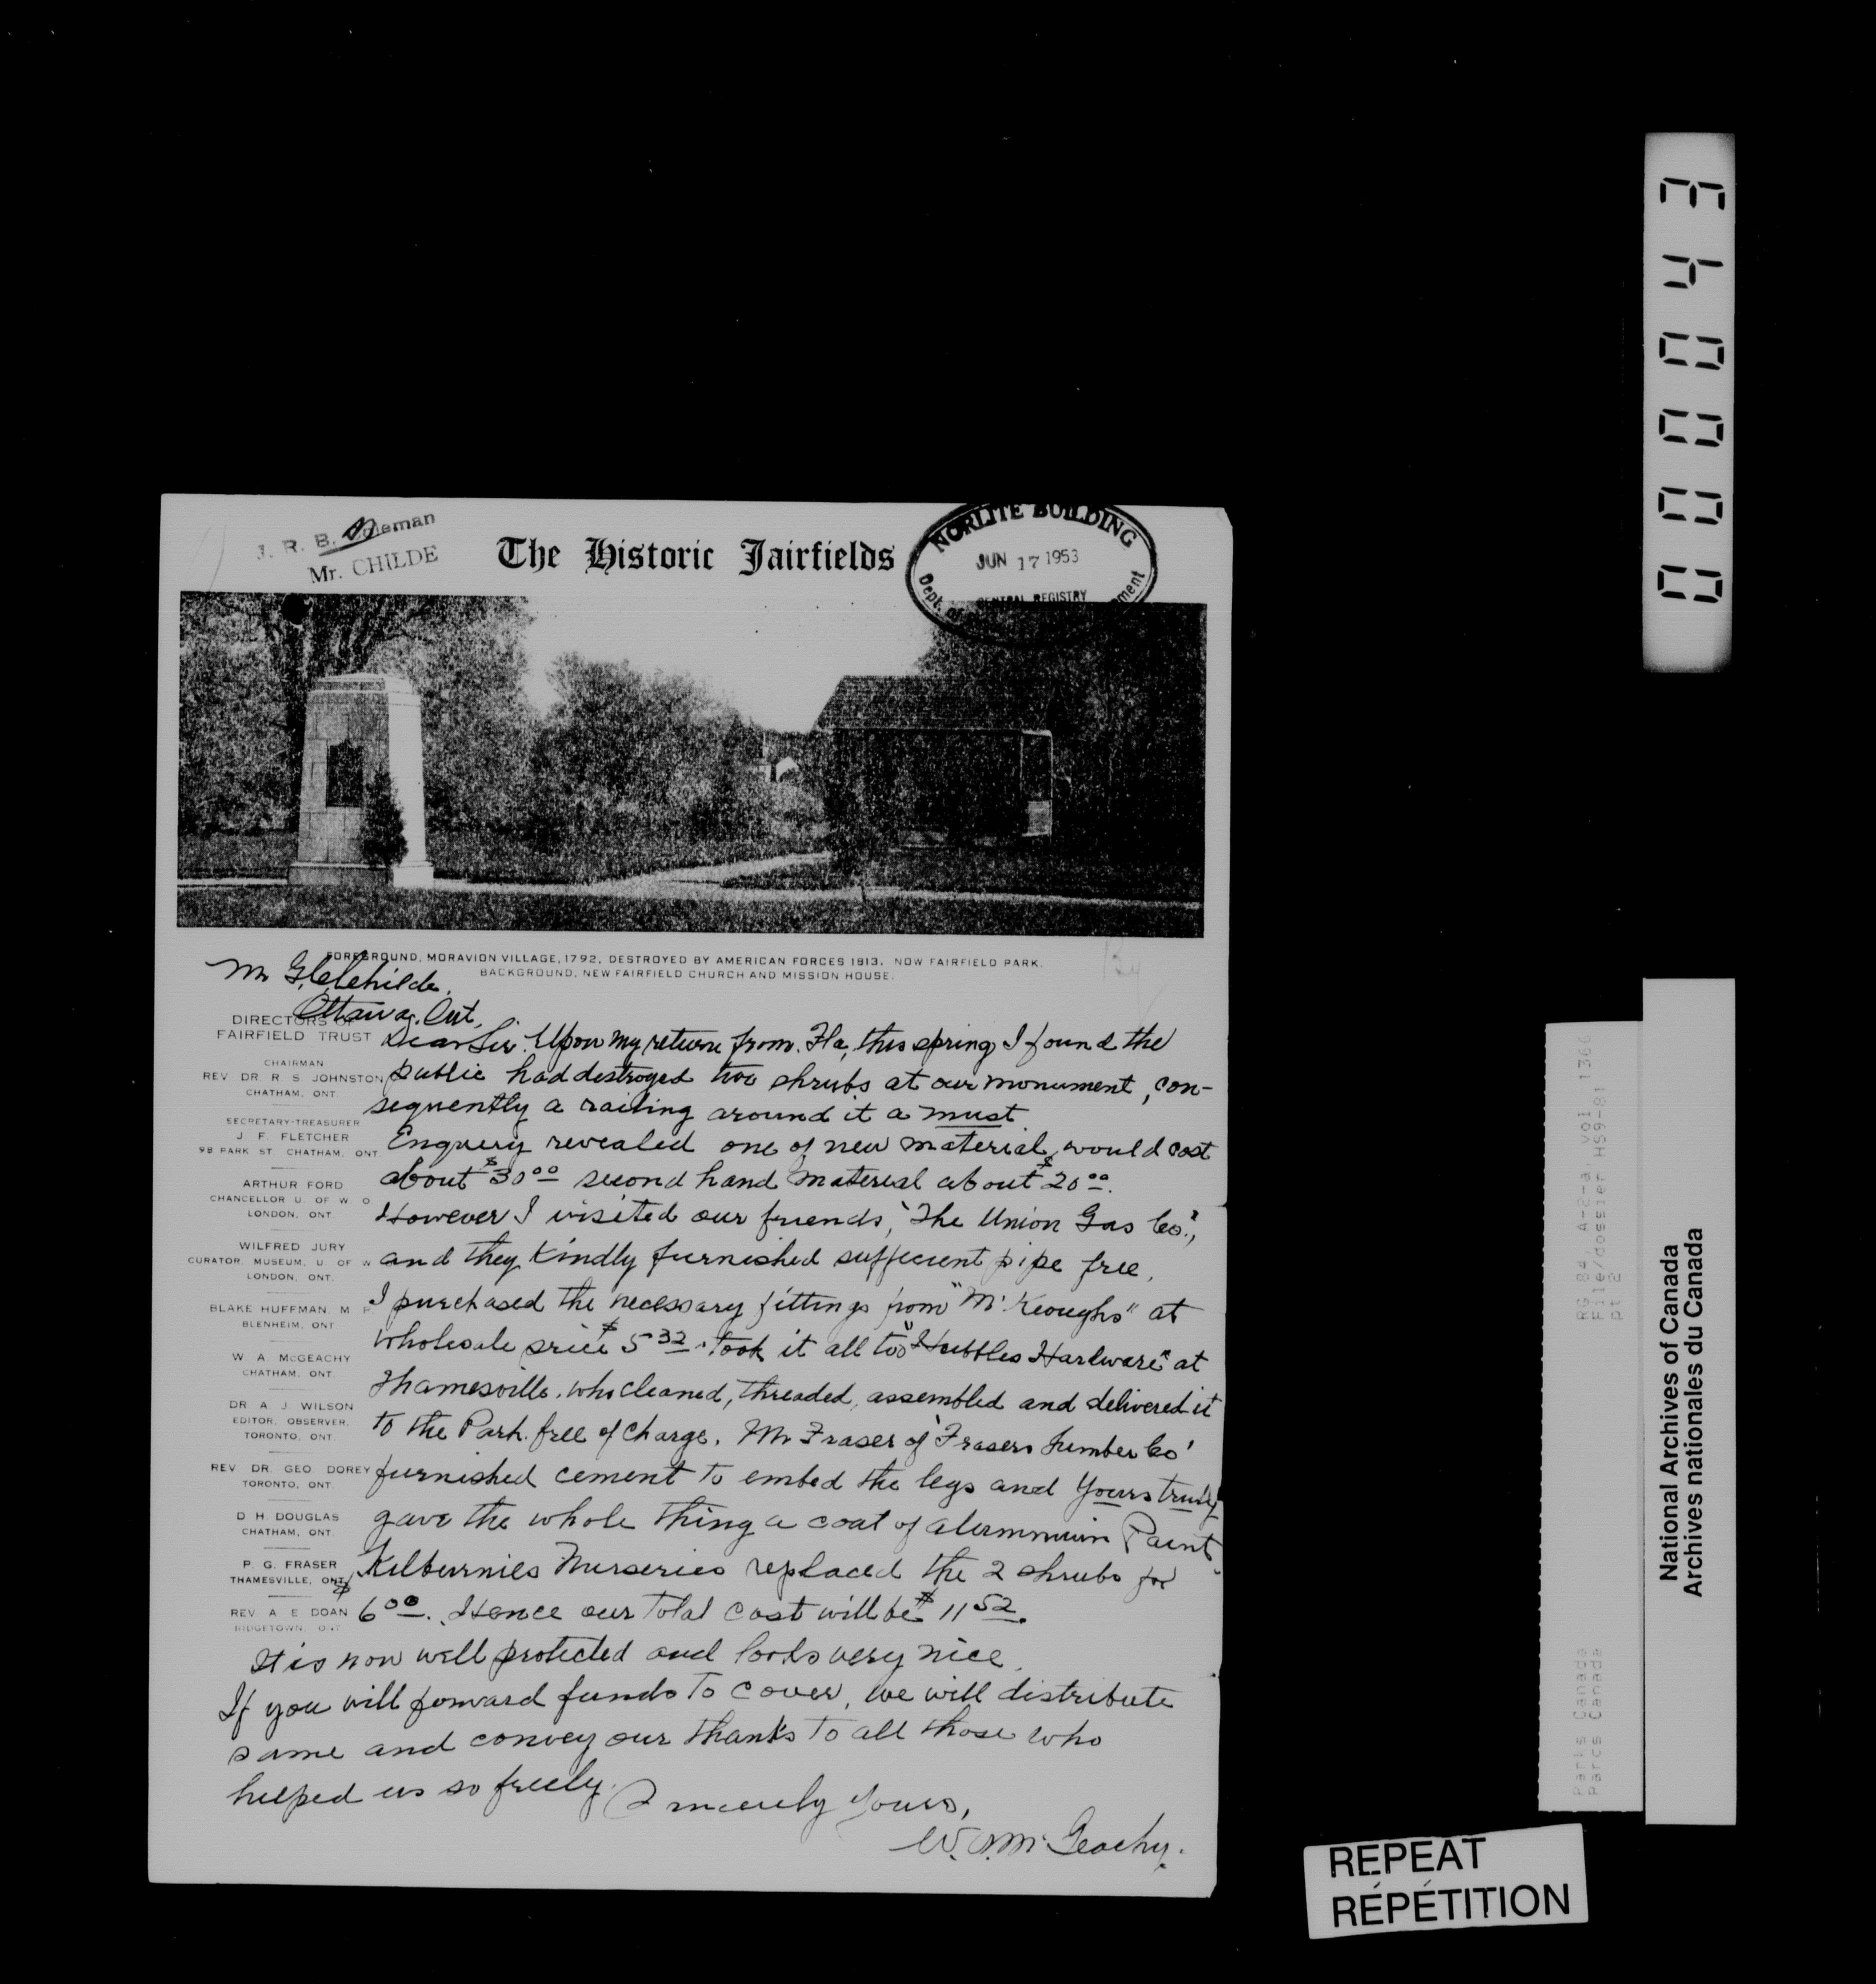 J. R. B. Coleman
Mr. CHILDE
The Historic Fairfields
NORLITE BUILDING
JUN 17 1953
CENTRAL REGISTRY
Dept.
FOREGROUND, MORAVION VILLAGE, 1792, DESTROYED BY AMERICAN FORCES 1813. NOW FAIRFIELD PARK.
BACKGROUND, NEW FAIRFIELD CHURCH AND MISSION HOUSE.
Mr Childe,
Ottawa, Ont,
DIRECTORS OF
FAIRFIELD TRUST
CHAIRMAN
REV DR. R S JOHNSTON
CHATHAM, ONT
SECRETARY-TREASURER
J. F. FLETCHER
98 PARK ST CHATHAM, ONT.
ARTHUR FORD
CHANCELLOR U OF W O
LONDON, ONT
WILFRED JURY
CURATOR, MUSEUM, U OF W
LONDON, ONT.
BLAKE HUFFMAN, M P
BLENHEIM, ONT
W. A. McGEACHY
CHATHAM, ONT
DR A J WILSON
EDITOR, OBSERVER,
TORONTO, ONT.
REV DR. GEO DOREY
TORONTO, ONT.
D H. DOUGLAS
CHATHAM, ONT.
P. G. FRASER
THAMESVILLE, ONT
REV A E DOAN
RIDGETOWN, ONT
Dear Sir. Upon my return from. Fla, this spring I found the
public had destroyed two shrubs at our monument, con-
sequently a railing around it a must
Enquery revealed one of new material, would cost
about $30 00 second hand material about $20 00.
However I visited our friends, "The Union Gas Co.",
and they kindly furnished suffecient pipe free.
I purchased the necessary fittings from "McKeoughs" at
wholesale price $5 32. took it all to "Hubbles Hardware" at
Thamesville. who cleaned, threaded, assembled and delivered it
to the Park. free of charge. Mr Fraser of 'Frasers Lumber Co'
furnished cement to embed the legs and Yours truly
gave the whole thing a coat of alumnuin Paint.
Kilburnies Nurseries replaced the 2 shrubs for
$6 00. Hence our total cost will be $11 52.
It is now well protected and looks very nice.
If you will forward funds to cover, we will distribute
same and convey our thanks to all those who
helped us so freely.
Sincerely Yours,
W. A. McGeachy.
E 4 0 0 0 0
RG 84, A-2-a, vol. 1366
File/dossier HS9-81
pt 2
Parks Canada
Parcs Canada
National Archives of Canada
Archives nationales du Canada
REPEAT
RÉPÉTITION